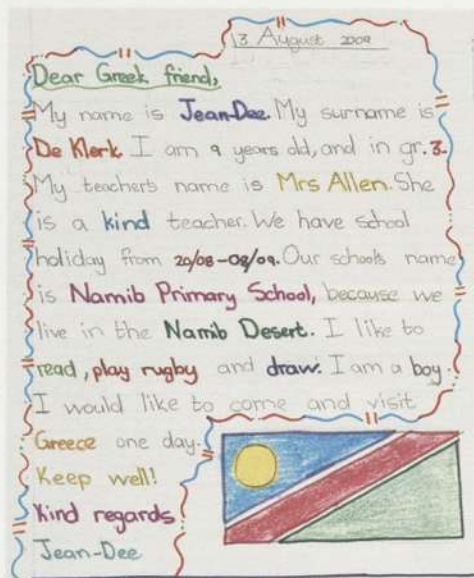 13 August 2009
Dear Greek friend,
My name is Jean-Dee. My surname is
De Klerk. I am 9 years old, and in gr. 3.
My teacher's name is Mrs Allen. She
is a kind teacher. We have school
holiday from 20/08-08/09. Our schools name
is Namib Primary School, because we
live in the Namib Desert. I like to
read, play rugby and draw. I am a boy.
I would like to come and visit
Greece one day.
Keep well!
Kind regards
Jean-Dee